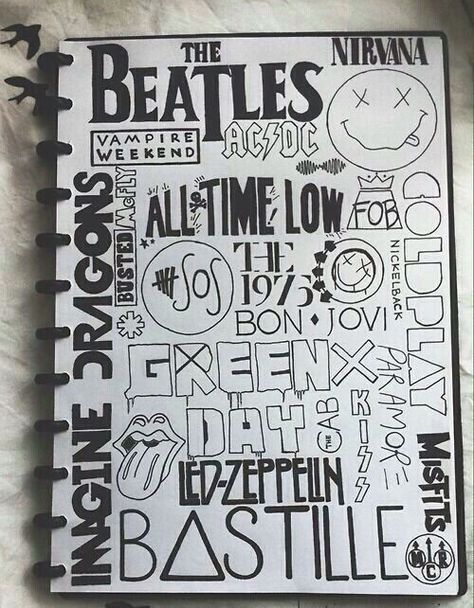 THE
BEATLES
NIRVANA
VAMPIRE
WEEKEND
AC⚡DC
IMAGINE DRAGONS
BUSTED
McFLY
ALL TIME LOW
FOB
COLDPLAY
SOS
THE
1975
NICKELBACK
BON ♦ JOVI
GREEN
DAY
X
PARAMORE
THE CAB
KISS
LED-ZEPPELIN
MISFITS
BASTILLE
M C R